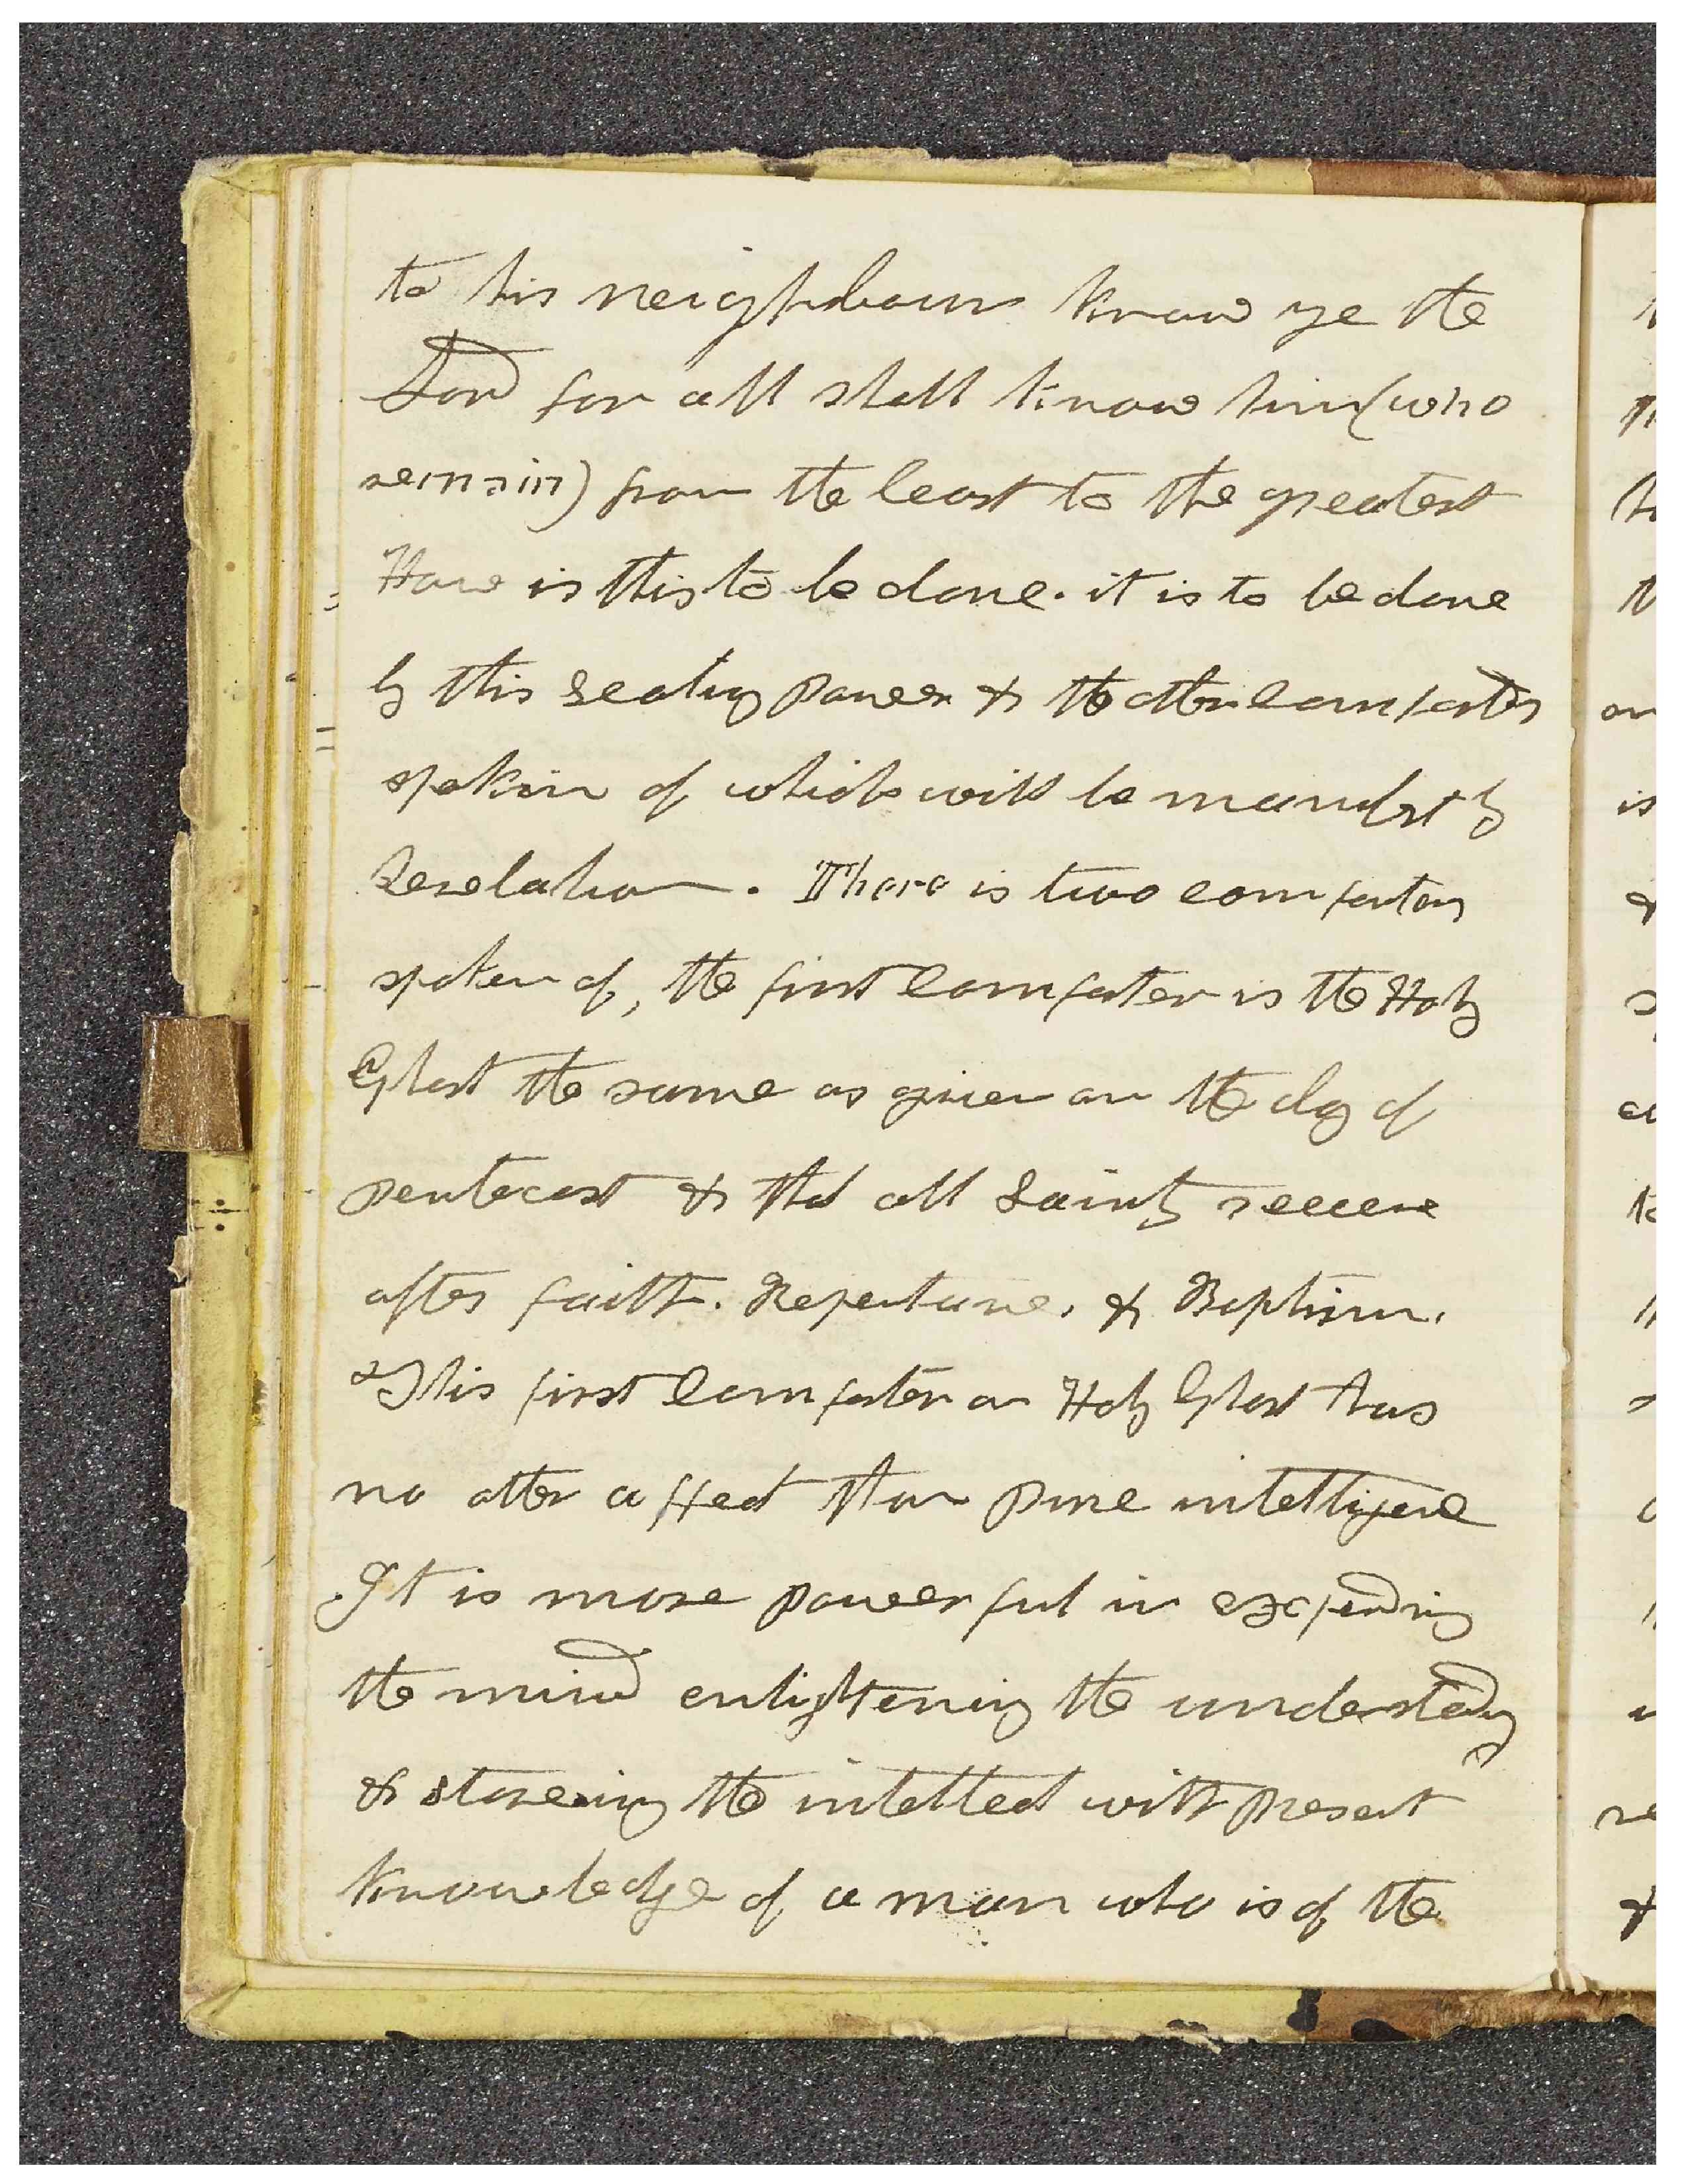 to his neighbour know ye the
Lord for all shall know him (who
remain) from the least to the greatest
How is this to be done. it is to be done
by this sealing power & the other comforter
spoken of which will be manifest by
Revelation. There is two comforters
spoken of, the first Comforter is the Holy
Ghost the same as given on the day of
pentecost & that all Saints receive
after faith. Repentance. & Baptism.
This first Comforter or Holy Ghost has
no other affect than pure intelligence
It is more powerful in expanding
the mind enlightening the understanding
& storeing the intellect with present
knowledge of a man who is of the